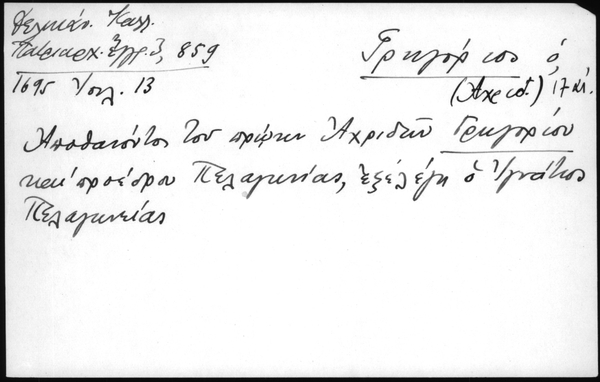 Δελικάν. Καλλ.
Πατριαρχ. Ἔγγρ. 3, 859
1695 Ἰουλ. 13
Γρηγόριος ὁ,
(Ἀχριδ.) 17 αἰ.
Ἀποθανόντος τοῦ πρώην Ἀχριδῶν Γρηγορίου
καὶ προέδρου Πελαγονίας, ἐξελέγη ὁ Ἰγνάτιος
Πελαγονείας